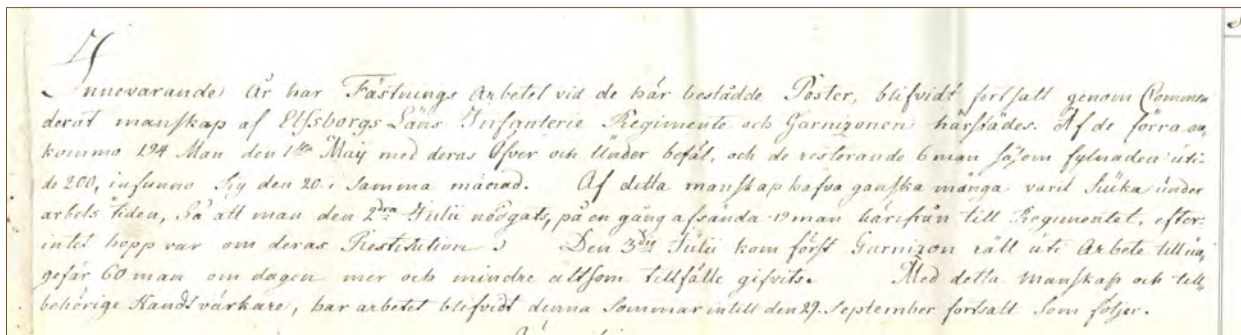 Innevarande År har Fästnings Arbetet vid de här bestådde Poster, blifvidt fortsatt genom Commen
derat manskap af Elfsborgs Läns Infanterie Regimente och Garnizonen härstädes. Af de förra an,
kommo 194 Man den 1sta Maij med deras Öfver och Under befäl, och de resterande 6 man såsom fylnaden uti
de 200, infunno sig den 20 i samma månad. Af detta manskap hafva ganska många varit Siuka under
arbets tiden, Så att man den 2dra Julii nödgats, på en gång afsända 19 man härifrån till Regimentet, efter-
intet hopp var om deras Restitution. Den 3die Julii kom först Garnizon rätt uti Arbete till un,
gefär 60 man om dagen mer och mindre altsom tillfälle gifvits. Med detta Manskap och till-
behörige Handtvärkare, har arbetet blifvidt denna Sommar intill den 29. September fortsatt som följer.